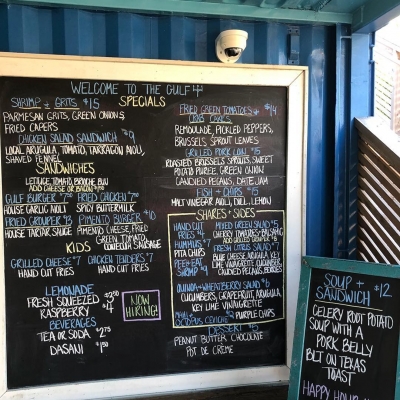 WELCOME TO THE GULF
SPECIALS
SHRIMP + GRITS $15
PARMESAN GRITS, GREEN ONIONS
FRIED CAPERS
CHICKEN SALAD SANDWICH $9
LOCAL ARUGULA, TOMATO, TARRAGON AIOLI,
SHAVED FENNEL
SANDWICHES
LETTUCE TOMATO BRIOCHE BUN
ADD CHEESE OR BACON
GULF BURGER
HOUSE GARLIC AIOLI
FRIED CHICKEN
SPICY BUTTERMILK
FRIED GROUPER $13
HOUSE TARTAR SAUCE
PIMENTO BURGER $10
PIMENTO CHEESE, FRIED
GREEN TOMATO,
CONECUH SAUSAGE
KIDS
GRILLED CHEESE $7
HAND CUT FRIES
CHICKEN TENDERS $7
HAND CUT FRIES
LEMONADE
FRESH SQUEEZED
RASPBERRY $4
BEVERAGES
TEA OR SODA $2.75
DASANI
NOW
HIRING!
FRIED GREEN TOMATOES + $14
CRAB CAKES
REMOULADE, PICKLED PEPPERS,
BRUSSELS SPROUT LEAVES
GRILLED PORK LOIN $15
ROASTED BRUSSELS SPROUTS, SWEET
POTATO PUREE GREEN ONION
CANDIED PECANS, DATE JAM
FISH + CHIPS $15
MALT VINEGAR AIOLI, DILL, LEMON
SHARES + SIDES
HAND CUT
FRIES $4
HUMMUS $7
PITA CHIPS
PEEL + EAT
SHRIMP
MIXED GREEN SALAD $5
CHERRY TOMATOES
ADD GRILLED
FRESH CITRUS SALAD
BLUE CHEESE ARUGULA KEY
LIME VINAIGRETTE CUCUMBER
CANDIED PECANS
QUINOA + WHEATBERRY SALAD $6
CUCUMBERS, GRAPEFRUIT, ARUGULA,
KEY LIME VINAIGRETTE
CEVICHE
PURPLE CHIPS
DESSERT $5
PEANUT BUTTER CHOCOLATE
POT DE CRÈME
SOUP +
SANDWICH $12
CELERY ROOT POTATO
SOUP WITH A
PORK BELLY
BLT ON TEXAS
TOAST
HAPPY HOUR